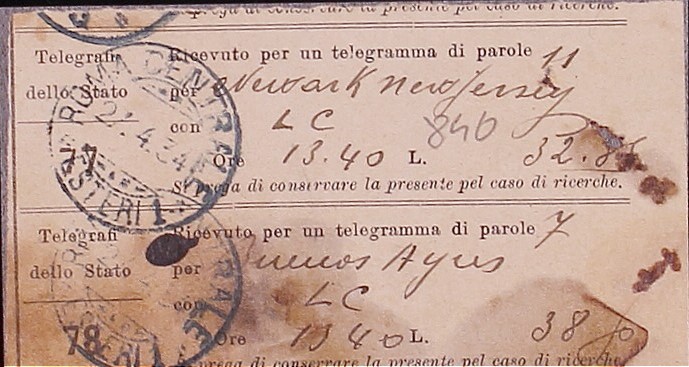 Si prega di conservare la presente pel caso di ricerche.
Telegrafi Ricevuto per un telegramma di parole 11
dello Stato per Newark New Jersey
con LC 840
77 Ore 13.40 L. 32.
Si prega di conservare la presente pel caso di ricerche.
ROMA CENTRALE
21.4.34
ESTERI 1
Telegrafi Ricevuto per un telegramma di parole 7
dello Stato per Buenos Ayres
con LC
78 Ore 13 40 L. 38
Si prega di conservare la presente pel caso di ricerche.
ESTERI 1